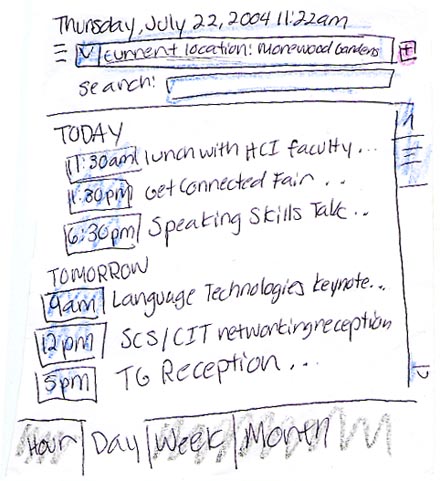 Thursday, July 22, 2004 11:22am
current location: Morewood Gardens +
search:
TODAY
11:30am lunch with HCI faculty...
1:30pm Get Connected Fair...
6:30pm Speaking Skills Talk..
TOMORROW
9am Language Technologies Keynote...
12pm SCS/CIT networking reception
5pm TG Reception...
Hour Day Week Month